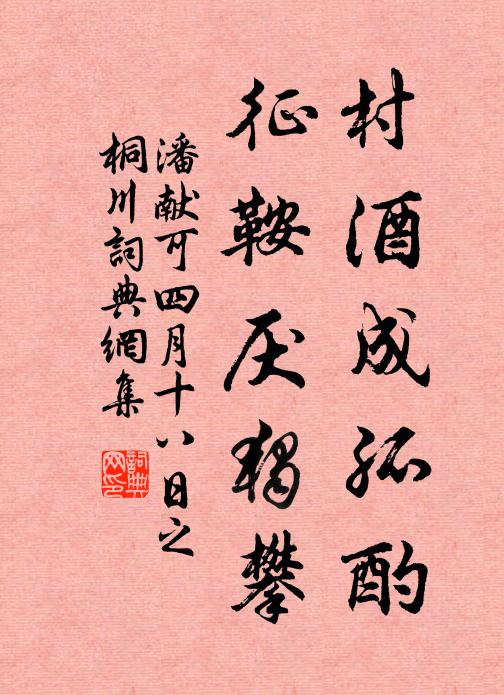 村酒成孤酌
征鞍厌独攀
潘献可四月十八日之
桐川詞典網集
詞典網印